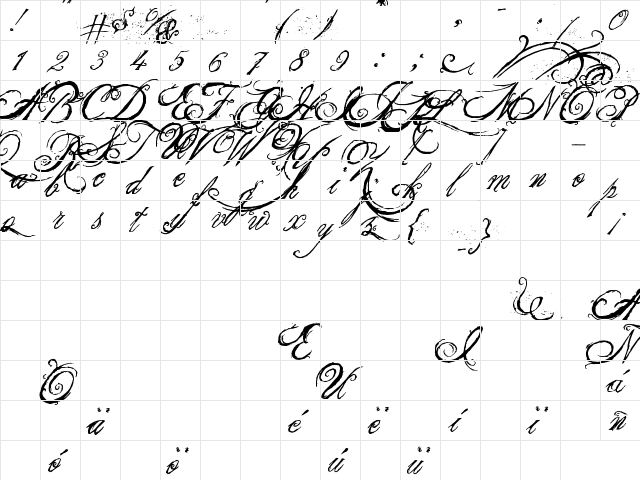 ! # $ % & ( ) ' - . / 0
1 2 3 4 5 6 7 8 9 : ;
A B C D E F G H I J K L M N O P
Q R S T U V W X Y Z [ ] _
a b c d e f g h i j k l m n o p
q r s t u v w x y z { }
¿ Á
É Í Ñ
Ó Ú á
ä é ë í ï ñ
ó ö ú ü